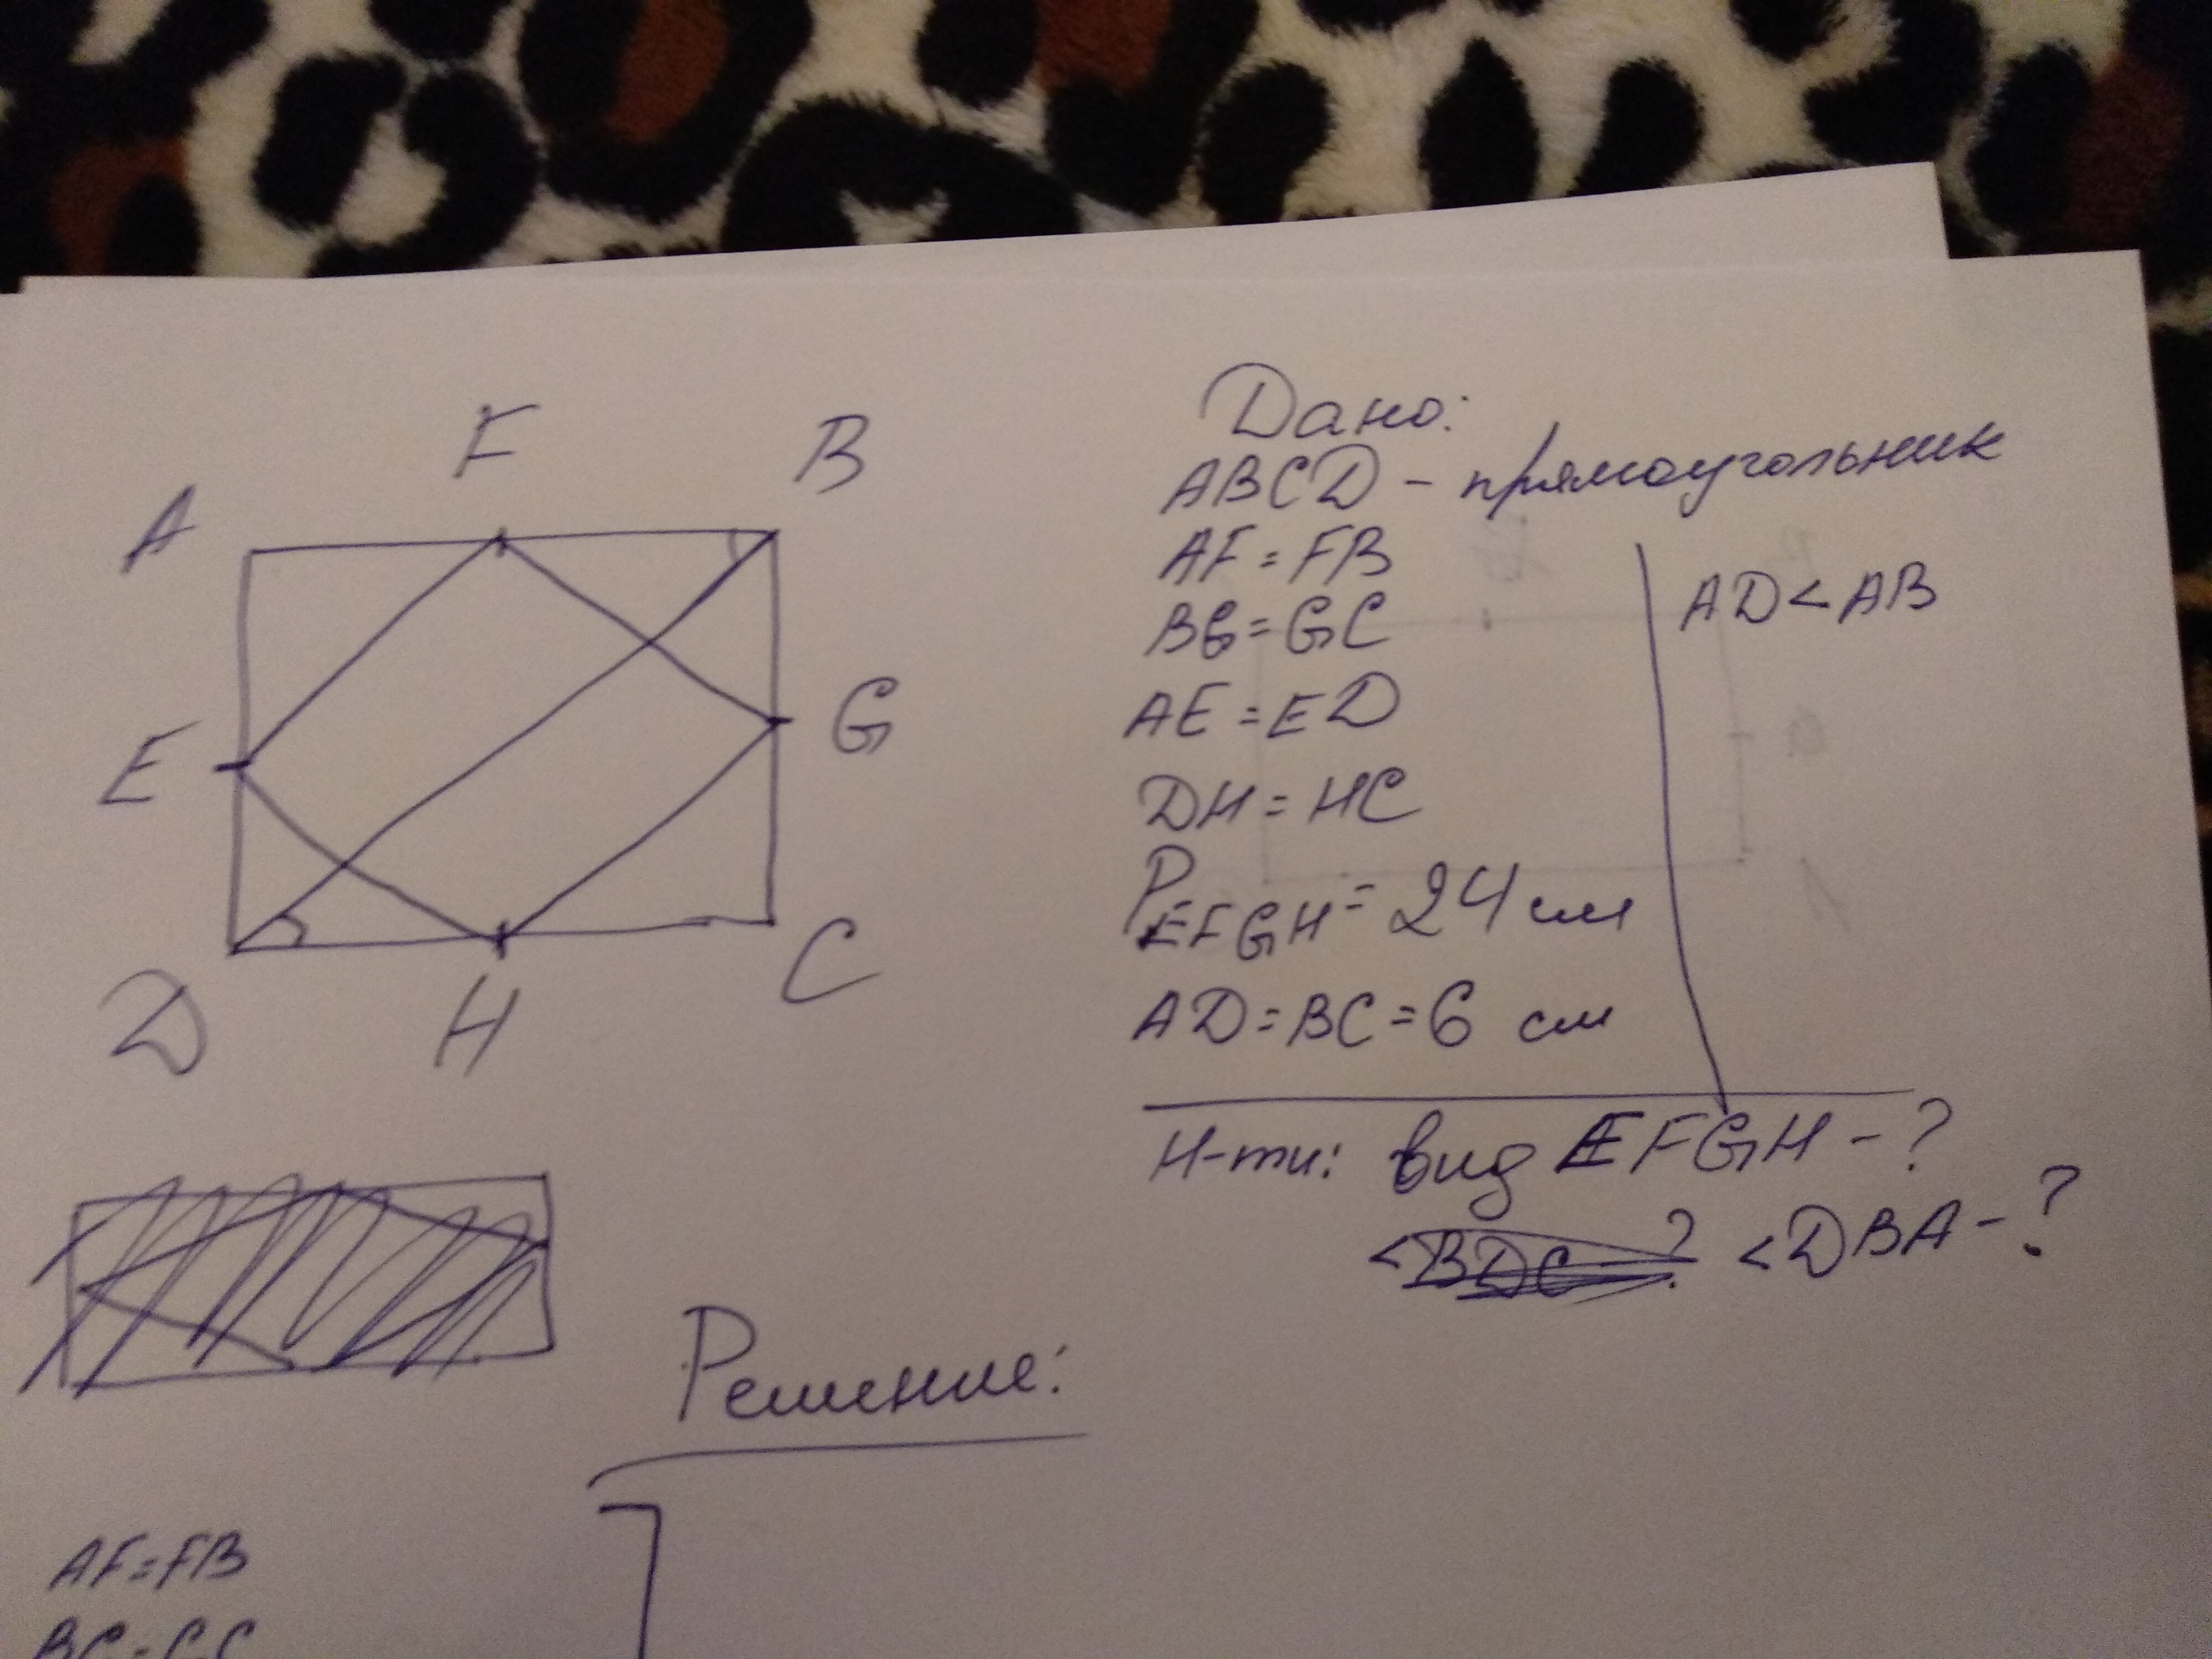 F
B
A
E
G
D
H
C
Дано:
ABCD - прямоугольник
AF = FB
BG = GC
AE = ED
DH = HC
P EFGH = 24 см
AD = BC = 6 см
AD < AB
Н-ти: вид EFGH - ?
<BDC ? <DBA - ?
Решение:
AF = FB